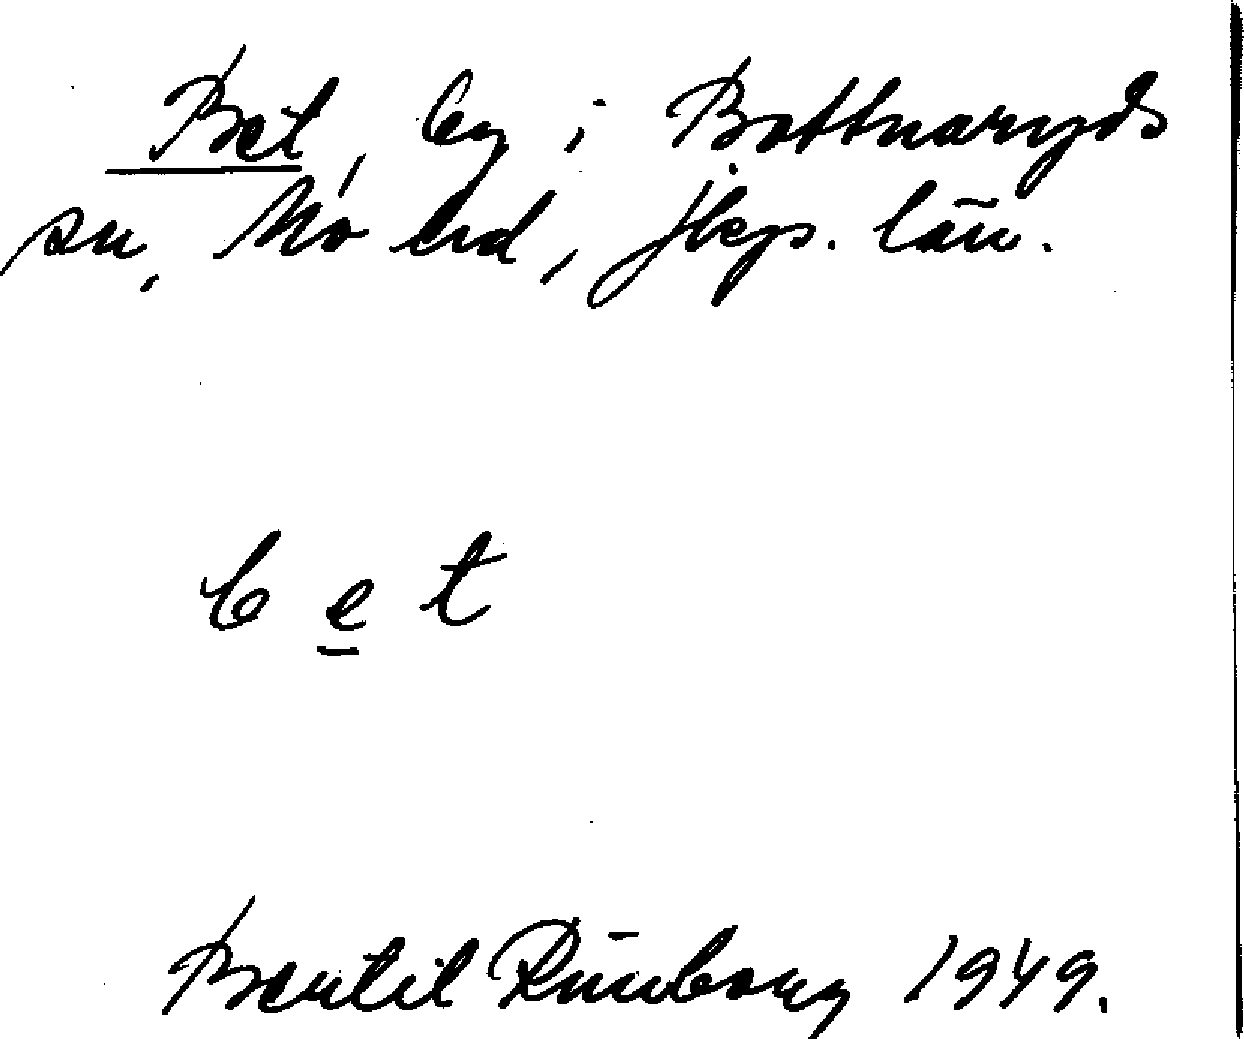 Bet, by i Bottnaryds
sn, Mo hd, Jkps. län.
b e t
Bertil Rimborg 1949.